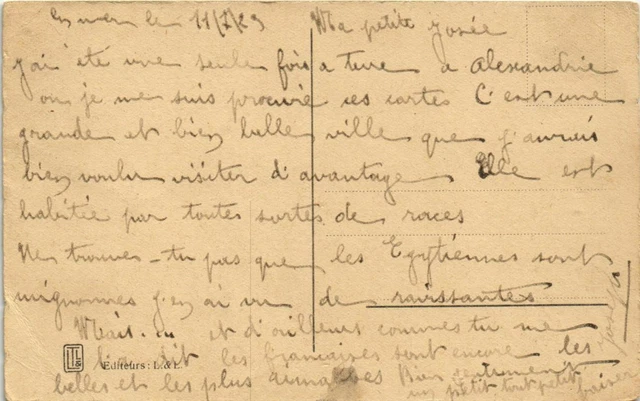 En mer le 11/7/29 Ma petite josée
j'ai été une seule fois a terre a Alexandrie
ou je me suis procuré ses cartes C'est une
grande et bien belle ville que j'aurais
bien voulu visiter d'avantage Elle est
habitée par toutes sortes de races
Ne trouves-tu pas que les Egytiennes sont
mignonnes j'en ai vu de ravissantes
Mais et d'ailleurs comme tu me
l'a dit les francaises sont encore les
belles et les plus aimables Bien gentiment
un petit tout petit baiser
Joseph
LL&
Éditeurs: L. & L.